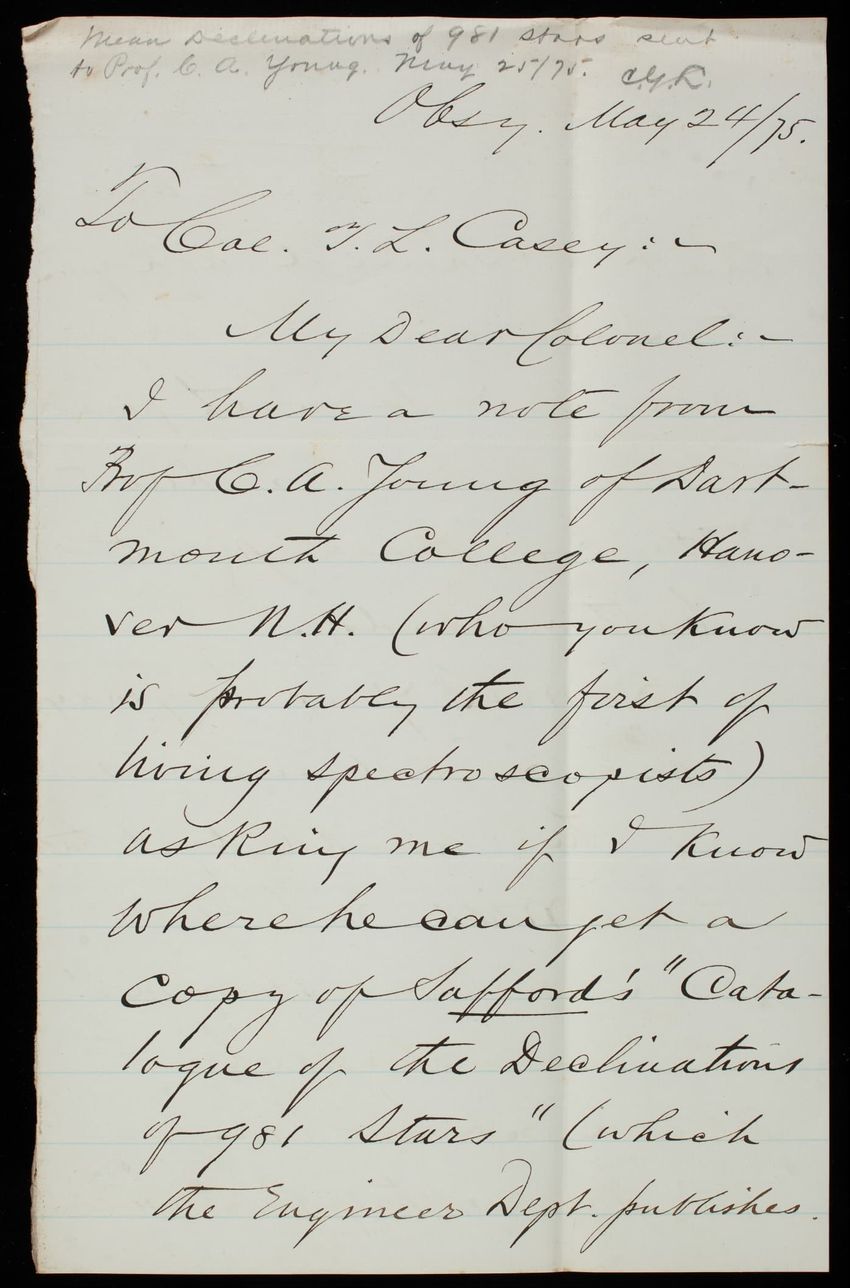 Mean Declinations of 981 stars sent
to Prof. C. A. Young. May 25/75. C.Y.K.
Obsy. May 24/75.
To Col. T. L. Casey:-
My Dear Colonel:-
I have a note from
Prof C. A. Young of Dart-
mouth College, Hano-
ver N.H. (who you know
is probably the first of
living spectroscopists)
asking me if I know
where he can get a
copy of Safford's "Cata-
logue of the Declinations
of 981 Stars" (which
the Engineer Dept. publishes.